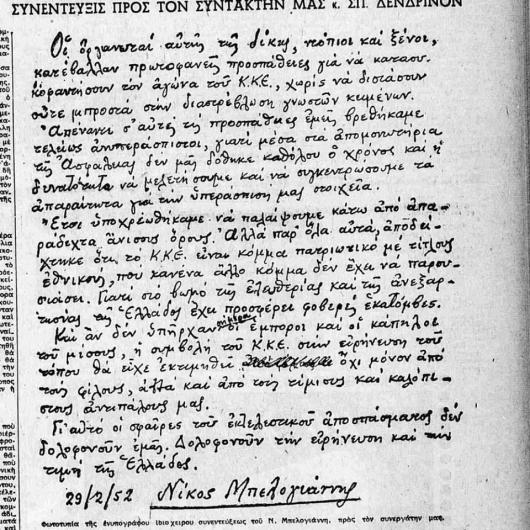 ΣΥΝΕΝΤΕΥΞΙΣ ΠΡΟΣ ΤΟΝ ΣΥΝΤΑΚΤΗΝ ΜΑΣ κ. ΣΠ. ΔΕΝΔΡΙΝΟΝ
Οἱ ὀργανωταί αὐτῆς τῆς δίκης, ντόπιοι καί ξένοι,
κατέβαλλαν πρωτοφανεῖς προσπάθειες γιά νά κατασυ-
κοφαντήσουν τόν ἀγώνα τοῦ Κ.Κ.Ε., χωρίς νά διστάσουν
οὔτε μπροστά στήν διαστρέβλωση γνωστῶν κειμένων.
Ἀπέναντι σ' αὐτές τίς προσπάθειες ἐμεῖς βρεθήκαμε
τελείως ἀνυπεράσπιστοι, γιατί μέσα στά ἀπομονωτήρια
τῆς Ἀσφάλειας δέν μᾶς δόθηκε καθόλου ὁ χρόνος καί ἡ
δυνατότητα νά μελετήσουμε καί νά συγκεντρώσουμε τά
ἀπαραίτητα γιά τήν ὑπεράσπιση μας στοιχεῖα.
Ἔτσι ὑποχρεωθήκαμε νά παλαίψουμε κάτω ἀπό ἀπα-
ράδεχτα ἄνισους ὅρους. Ἀλλά παρ' ὅλα αὐτά, ἀποδεί-
χτηκε ὅτι τό Κ.Κ.Ε. εἶναι κόμμα πατριωτικό μέ τίτλους
ἐθνικούς, πού κανένα ἄλλο κόμμα δέν ἔχει νά παρου-
σιάσει. Γιατί στό βωμό τῆς ἐλευθερίας καί τῆς ἀνεξαρ-
τησίας τῆς Ἑλλάδος ἔχει προσφέρει φοβερές ἑκατόμβες.
Καί ἄν δέν ὑπῆρχαν οἱ ἔμποροι καί οἱ κάπηλοι
τοῦ μίσους, ἡ συμβολή τοῦ Κ.Κ.Ε. στήν εἰρήνευση τοῦ
τόπου θά εἶχε ἐκτιμηθεῖ ὄχι μόνον ἀπό
τούς φίλους, ἀλλά καί ἀπό τούς τίμιους καί καλόπι-
στους ἀντιπάλους μας.
Γι' αὐτό οἱ σφαῖρες τοῦ ἐκτελεστικοῦ ἀποσπάσματος δέν
δολοφονοῦν ἐμᾶς. Δολοφονοῦν τήν εἰρήνευση καί τήν
τιμή τῆς Ἑλλάδος.
29/2/52 Νίκος Μπελογιάννης
Φωτοτυπία τῆς ἐνυπογράφου ἰδιοχείρου συνεντεύξεως τοῦ Ν. Μπελογιάννη, πρὸς τὸν συνεργάτην μας.